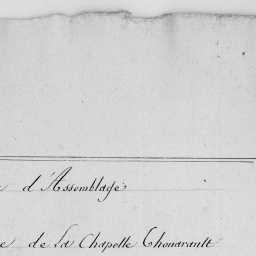 d'Assemblage
de La Chapelle Chouarault